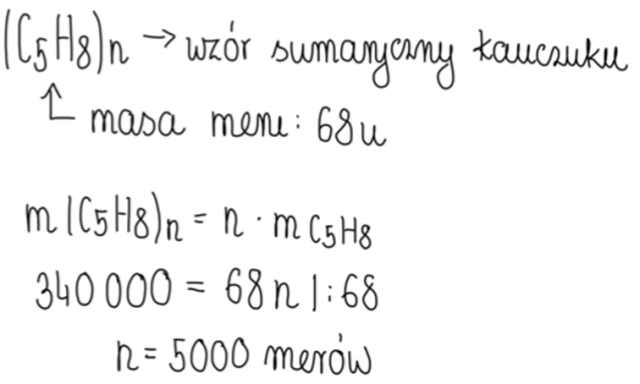 (C5H8)n → wzór sumaryczny kauczuku
masa meru: 68u
m(C5H8)n = n · m C5H8
340 000 = 68n |:68
n = 5000 merów